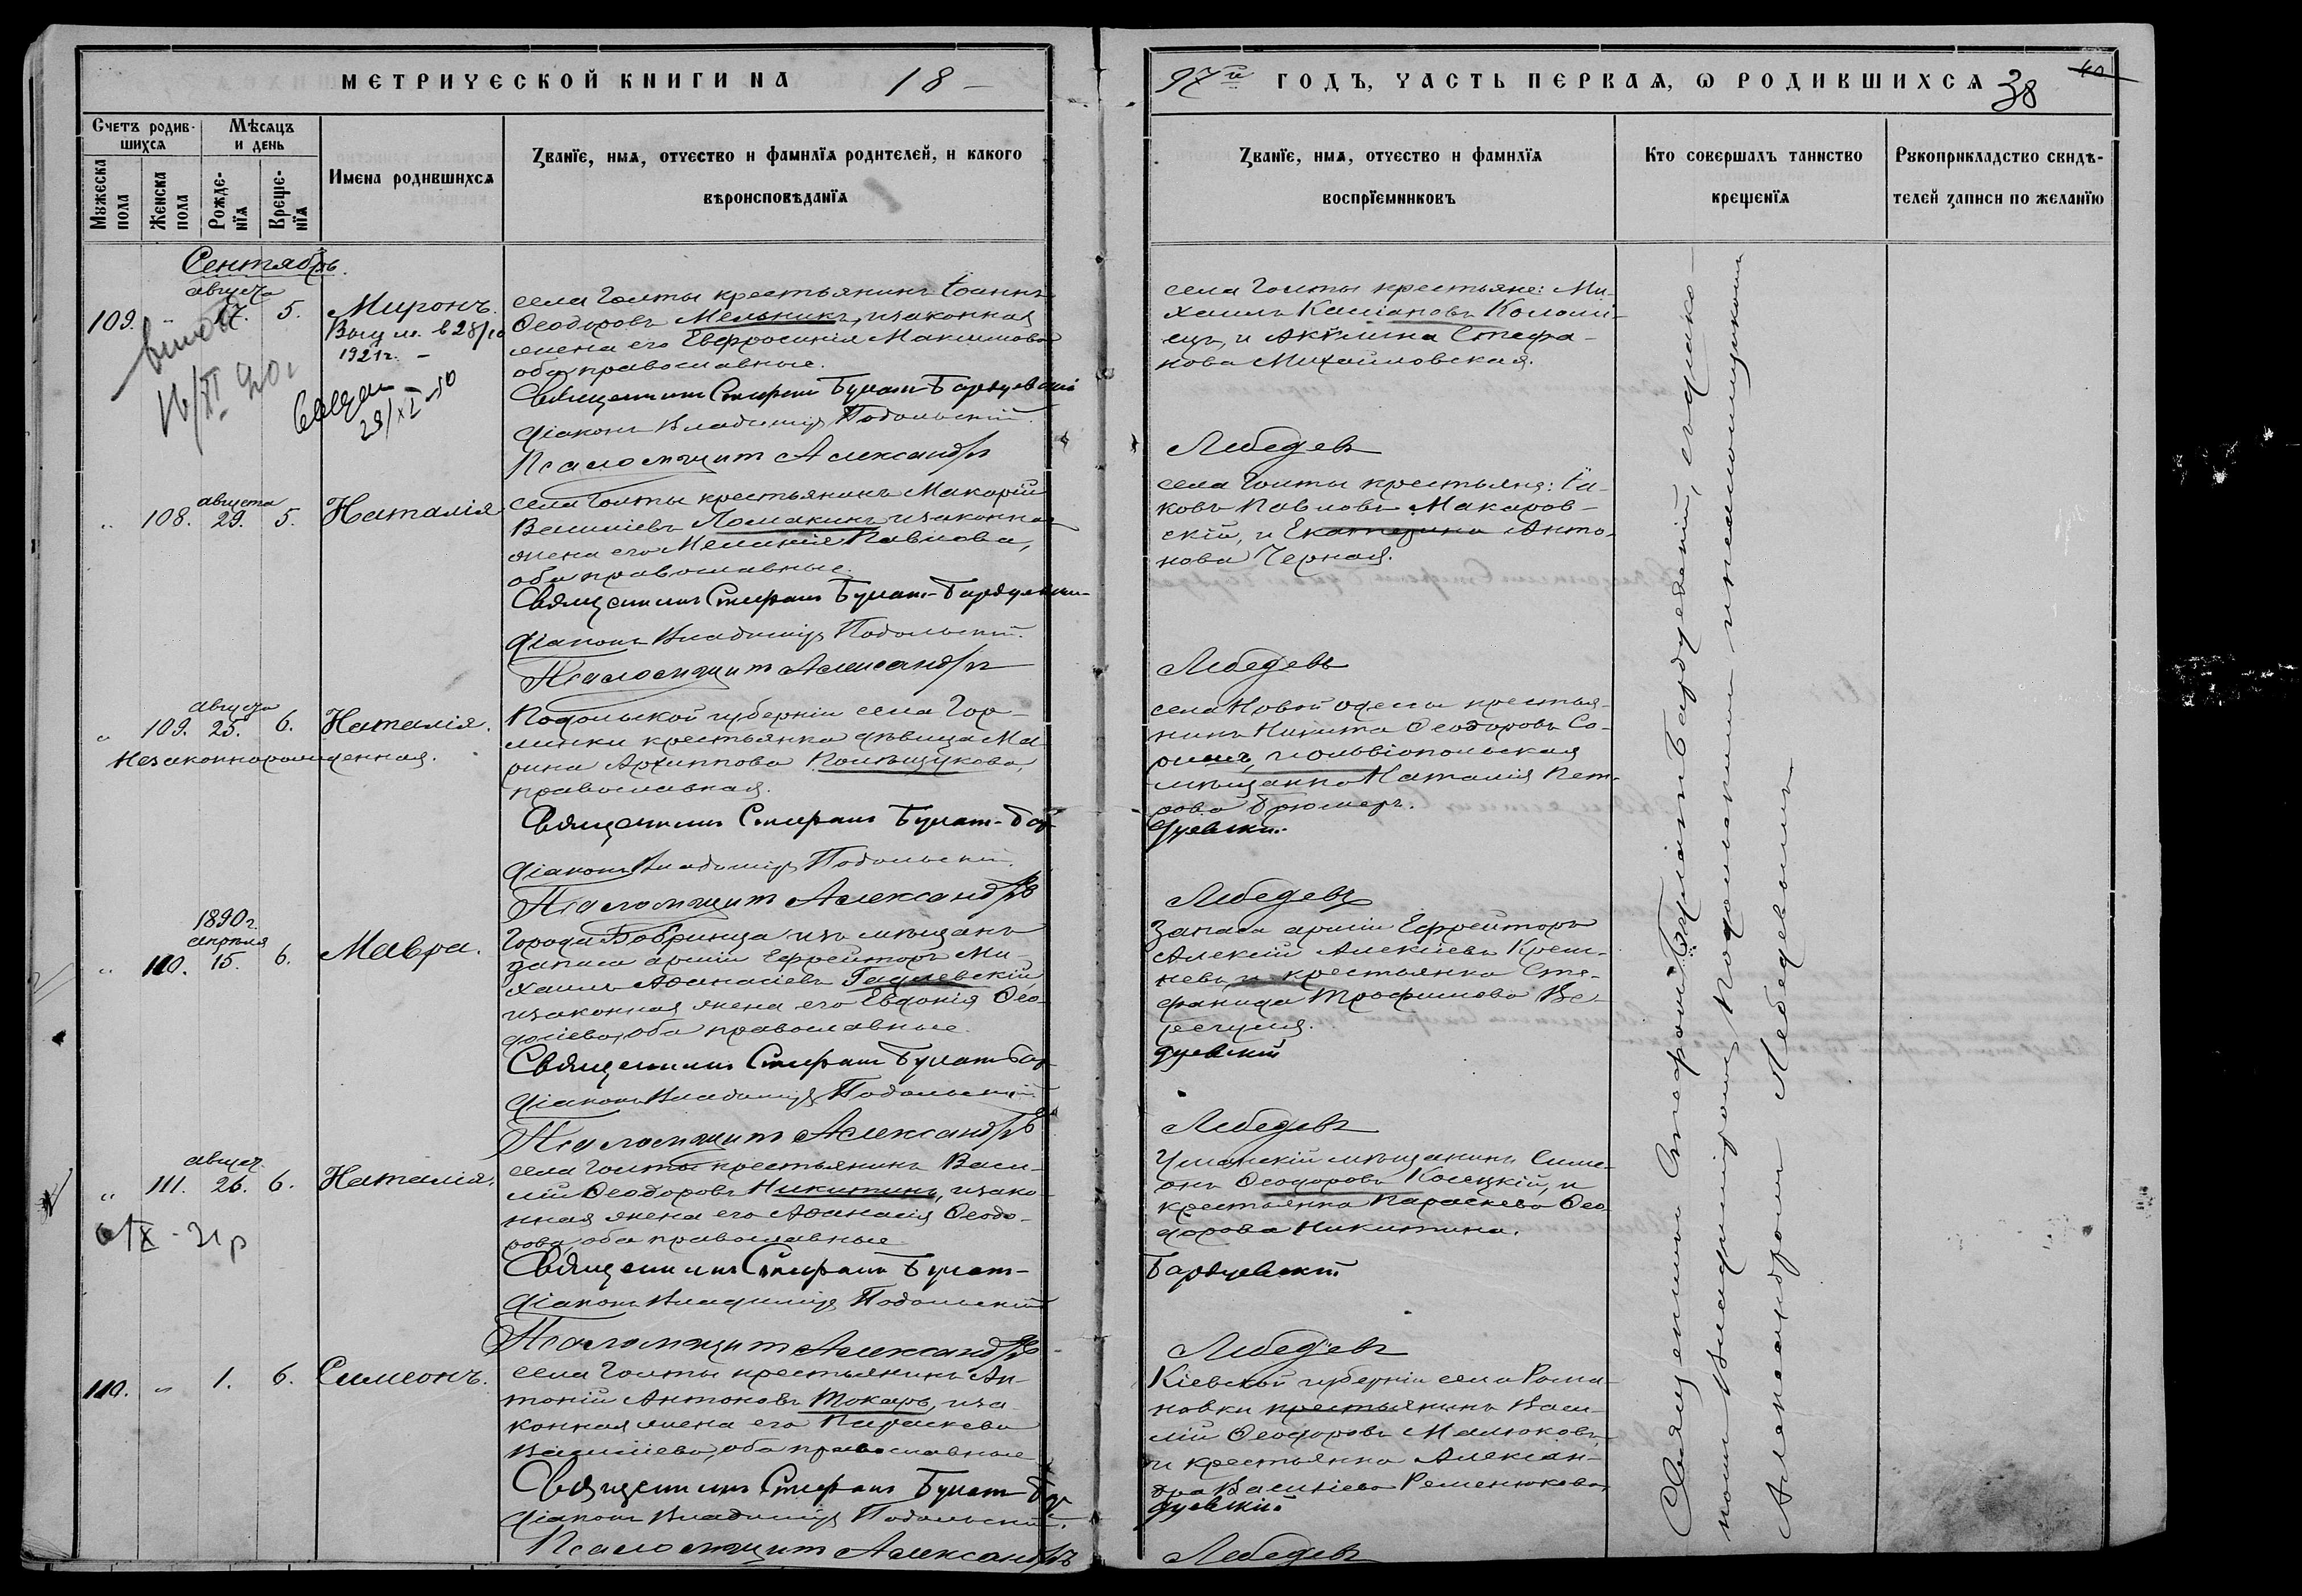 МЕТРИЧЕСКОЙ КНИГИ НА 18
97й ГОДЪ, ЧАСТЬ ПЕРВАЯ, Ѡ РОДИВШИХСЯ 38
Счетъ родив-
шихся
Мѣсяцъ
и день
Мужеска
пола
Женска
пола
Рожде-
нїя
Креще-
нїя
Имена родившихся
Званїе, имя, отчество и фамилїя родителей, и какого
вѣроисповѣданїя
Званїе, имя, отчество и фамилїя
воспрїемниковъ
Кто совершалъ таинство
крещенїя
Рукоприкладство свидѣ-
телей записи по желанїю
Сентябрь.
августа
109. " 17. 5. Миронъ.
1921г.
села Голты крестьянинъ Іоаннъ
Ѳеодоровъ Мельникъ, и законная
жена его Евфросинія Максимова
оба православные.
Священникъ Стефанъ Булат-Бардуевскій
Діаконъ Владиміръ Подольскій.
Псаломщикъ Александръ
села Голты крестьяне: Ми-
хаилъ Кассіановъ Коломі-
ецъ, и Акѵлина Стефа-
нова Михайловская.
Лебедевъ
августа
" 108. 29. 5. Наталія
села Голты крестьянинъ Макарій
Василіевъ Ломакинъ и законная
жена его Меланія Павлова,
оба православные.
Священникъ Стефанъ Булат-Бардуевскій
Діаконъ Владиміръ Подольскій.
Псаломщикъ Александръ
села Голты крестьяне: Іа-
ковъ Павловъ Макаров-
скій, и Екатерина Анто-
нова Черная.
Лебедевъ
августа
" 109. 25. 6. Наталія.
Незаконнорожденная.
Подольской губерніи села Гор-
линки крестьянка дѣвица Ма-
рина Архиппова Полѣщукова,
православная.
Священникъ Стефанъ Булат-Бар-
Діаконъ Владиміръ Подольскій.
Псаломщикъ Александръ
села Новой Одессы крестья-
нинъ Никита Ѳеодоровъ Со-
и Ольвіопольская
мѣщанка Наталія Пет-
рова Брюмеръ.
дуевскій.
Лебедевъ
1890г.
апрѣля
" 110. 15. 6. Мавра.
Города Бобринца изъ мѣщанъ
запаса арміи Ефрейторъ Ми-
хаилъ Аѳанасіевъ
и законная жена его Евдокія Ѳео-
досіева, оба православные.
Священникъ Стефанъ Булат-Бар-
Діаконъ Владиміръ Подольскій
Псаломщикъ Александръ
Запаса арміи Ефрейторъ
Алексій Алексіевъ Крем-
невъ, и крестьянка Сте-
фанида Трофимова Ве-
регуля.
дуевскій
Лебедевъ
август.
" 111. 26. 6. Наталія.
села Голты крестьянинъ Васи-
лій Ѳеодоровъ Никитинъ, и зако-
нная жена его Аѳанасія Ѳеодо-
рова, оба православные
Священникъ Стефанъ Булат-
Діаконъ Владиміръ Подольскій
Псаломщикъ Александръ
Уманскій мѣщанинъ Симе-
онъ Ѳеодоровъ Косецкій, и
крестьянка Параскева Ѳео-
дорова Никитина.
Бардуевскій
Лебедевъ
110. " 1. 6. Симеонъ.
села Голты крестьянинъ Ан-
тоній Антоновъ Токарь, и за-
конная жена его Параскева
Василіева, оба православные
Священникъ Стефанъ Булат-Бар-
Діаконъ Владиміръ Подольскій.
Псаломщикъ Александръ
Кіевской губерніи села Рома-
новки крестьянинъ Васи-
лій Ѳеодоровъ Малюковъ,
и крестьянка Алексан-
дра Василіева Ременюкова
дуевскій
Лебедевъ
Священникъ Стефанъ Булатъ-Бардуевскій, съ діако-
номъ Владиміромъ Подольскимъ и псаломщикомъ
Александромъ Лебедевымъ